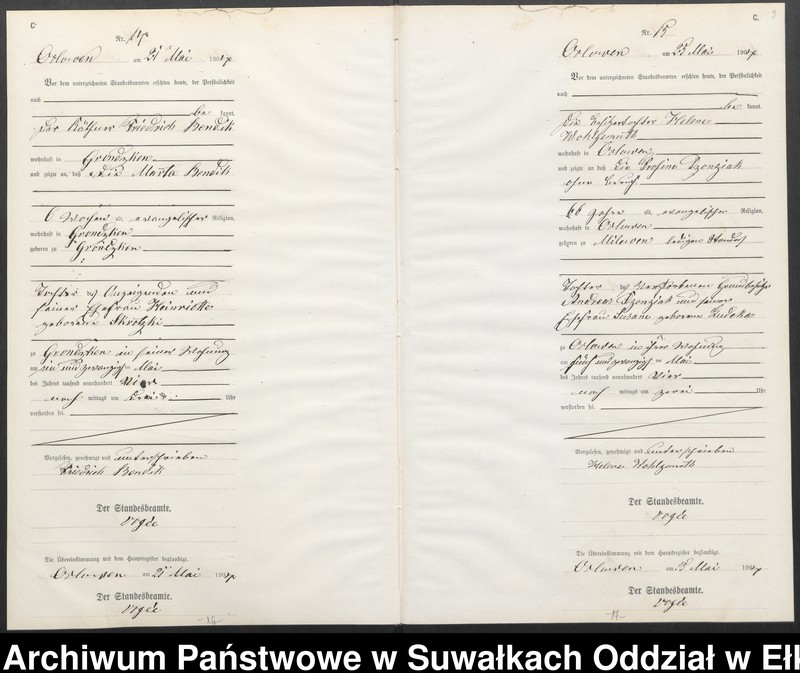 C.
Nr. 14
Orlowen am 21 Mai 1904
Vor dem unterzeichneten Standesbeamten erschien heute, der Persönlichkeit
nach
be kannt,
der Käthner Friedrich Bendik
wohnhaft in Grondzken
und zeigte an, daß Marta Bendik
6 Wochen alt, evangelischer Religion,
wohnhaft in Grondzken
geboren zu Grondzken
Tochter des Anzeigenden und
seiner Ehefrau Heinriette
geborene Skrotzki
zu Grondzken in seiner Wohnung
am ein und zwanzigsten Mai
des Jahres tausend neunhundert vier
nach mittags um drei Uhr
verstorben sei.
Vorgelesen, genehmigt und unterschrieben
Friedrich Bendik
Der Standesbeamte.
Die Übereinstimmung mit dem Hauptregister beglaubigt.
Orlowen am 21 Mai 1904
Der Standesbeamte.
C.
Nr. 15
Orlowen am 25 Mai 1904
Vor dem unterzeichneten Standesbeamten erschien heute, der Persönlichkeit
nach
be kannt,
die Besitzertochter Helene
Wohlgemuth
wohnhaft in Orlowen
und zeigte an, daß die Rosine Dzonziak
ohne Beruf
66 Jahre alt, evangelischer Religion,
wohnhaft in Orlowen
geboren zu Milewen ledigen Standes
Tochter des verstorbenen Grundbesitzer
Andreas Dzonziak und seiner
Ehefrau Susane geborene
zu Orlowen in ihrer Wohnung
am fünf und zwanzigsten Mai
des Jahres tausend neunhundert vier
nach mittags um zwei Uhr
verstorben sei.
Vorgelesen, genehmigt und unterschrieben
Helene Wohlgemuth
Der Standesbeamte.
Die Übereinstimmung mit dem Hauptregister beglaubigt.
Orlowen am 25 Mai 1904
Der Standesbeamte.
Archiwum Państwowe w Suwałkach Oddział w Ełk